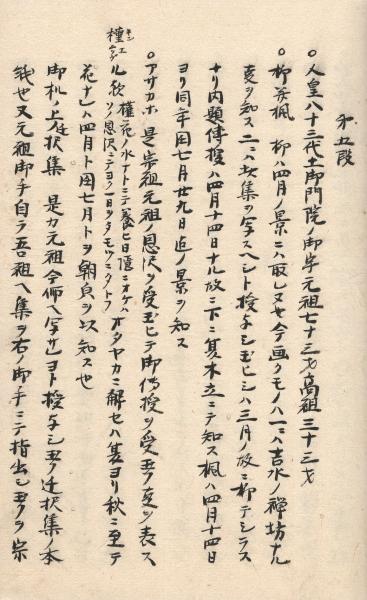 第五段
○人皇八十三代土御門院ノ御宇元祖七十三才高祖三十三才
○柳并楓 柳ハ四月ノ景ニハ取レ又也今画クモノハ一ニハ吉水ノ禅坊ナル
コヲ知ス二ニハ此集ヲ写スヘシト授与シ玉ヒシハ三月ノ故ニ柳テシラス
ナリ内題傳授ハ四月十四日ナル故ニ下ニ夏木立ニテ知ス楓ハ四月十四日
ヨリ同年閏七月廿九日迄ノ景ヲ知ス
○アサカホ 是ハ高祖元祖ノ恩沢ヲ受玉ヒテ御傳授ヲ受玉フコヲ表ス
種ル欲 権花ノ水ニテ養ヒ日隠ニオケハ オタヤカニ解セハ夏ヨリ秋ニ至テ
ノ恩沢ニテヨク日ヲタモツニタトフ
花ナレハ四月ト閏七月トヲ朝貌ヲ以知ス也
御札ノ上選択集 是カ元祖今師ヘ写サレヨト授与シ玉フ選択集ノ本
紙也又元祖御手自ラ吾祖ヘ集ヲ右ノ御手ニテ指出シ玉フヲ宗